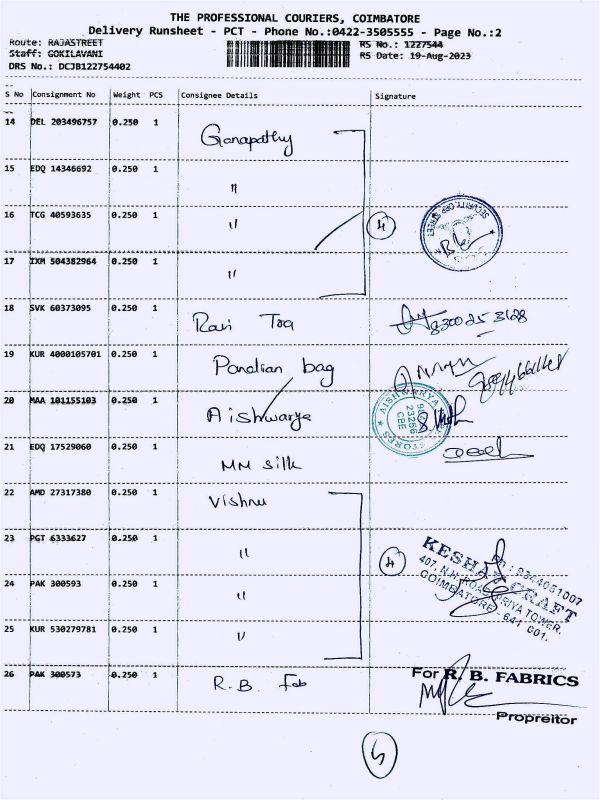 THE PROFESSIONAL COURIERS, COIMBATORE
Delivery Runsheet - PCT - Phone No.:0422-3505555 - Page No.:2
Route: RAJASTREET RS No.: 1227544
Staff: GOKILAVANI RS Date: 19-Aug-2023
DRS No.: DCJB122754402
S No Consignment No Weight PCS Consignee Details Signature
14 DEL 203496757 0.250 1 Ganapathy
15 EDQ 14346692 0.250 1 "
16 TCG 40593635 0.250 1 " 4
SECURITY, OPP STREET
17 IXM 504382964 0.250 1 "
18 SVK 60373095 0.250 1 Ravi Tra
19 KUR 4000105701 0.250 1 Pandian bag
20 MAA 101155103 0.250 1 Aishwarya
AISHWARYA STORES CBE
21 EDQ 17529060 0.250 1 MM Silk
22 AMD 27317380 0.250 1 Vishnu
23 PGT 6333627 0.250 1 " 4
24 PAK 300593 0.250 1 "
KESHAV CRAFT
407, N.H. ROAD, PRIYA TOWER,
COIMBATORE - 641 001.
25 KUR 530279781 0.250 1 "
26 PAK 300573 0.250 1 R.B. Fab
For R. B. FABRICS
Propreitor
5